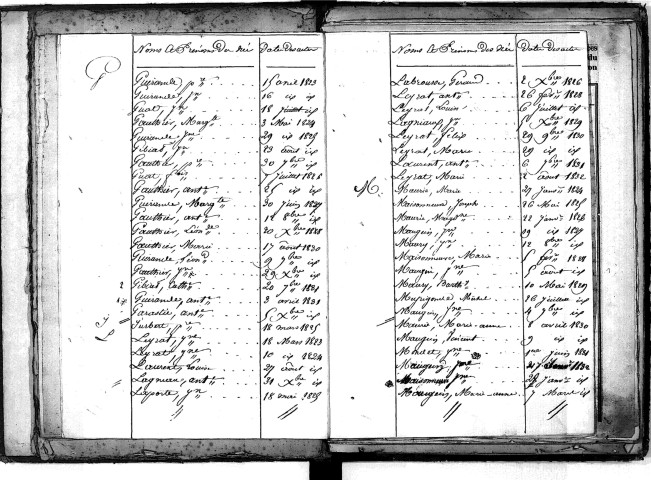 Noms et Prénoms des Nés Date des actes
G
Guirande, p.re 15 avril 1823
Guirande, J.n 16 id
Guat, J.n 18 juillet id
Gauthier, Marg.te 3 Mai 1824
Guirande, J.ne 29 id 1825
Gibiat, J.n 23 août id
Gauthier, p.re 30 7bre id
Guat, 7 juillet 1826
Gauthier, ant.e 25 id id
Guirande, Marg.te 30 Juin 1827
Gauthier, ant.e 12 8bre id
Gauthier, Léon.de 20 Xbre 1828
Gauthier, Marie 17 août 1830
Guirande, Léon.d 9 9bre id
Gauthier, J.ne 29 Xbre id
Gibiat, Cath.e 20 7bre 1831
Guirande, ant.e 3 avril 1831
Garaslie, ant.e 5 Xbre id
J Jusbert, p.re 18 mars 1825
L Leyrat, J.ne 18 Mars 1823
Leyrat, J.ne 10 id 1824
Laurent, Louise 27 août id
Lagneau, ant.e 31 Xbre id
Laporte, J.n 18 mai 1825
Noms et Prénoms des Nés Date des actes
Labrousse, Geraud 2 Xbre 1826
Leyrat, ant.e 26 fév.r 1828
Leyrat, Louise 6 juillet id
Lagniaud, J.n 5 Xbre 1829
Leyrat, Félix 29 9bre 1830
Leyrat, Marie 29 id id
Laurent, ant.e 6 7bre 1831
Leyrat, Marie 2 août 1832
M Maurie, Marie 27 Janv.r 1824
Maisonneuve, Joseph 26 Mai 1825
Maurie, 22 Janv.r 1826
Maugein, J.n 29 id 1827
Maury, J.n 12 id
Maisonneuve, Marie 5 fév.r 1828
Maugein, J.ne 5 août id
Maury, Barth.y 10 Mai 1829
Michel 26 Juillet id
Maugein, J.n 4 7bre id
Maurie, Marie-anne 8 avril 1830
Maugein, Vincent 9 id id
Mondet, J.ne 1er Juin 1831
Maugein, J.ne 1832
Maisonneuve J.ne 28 Janv.r id
Maugein, Marie-anne 7 Mars id